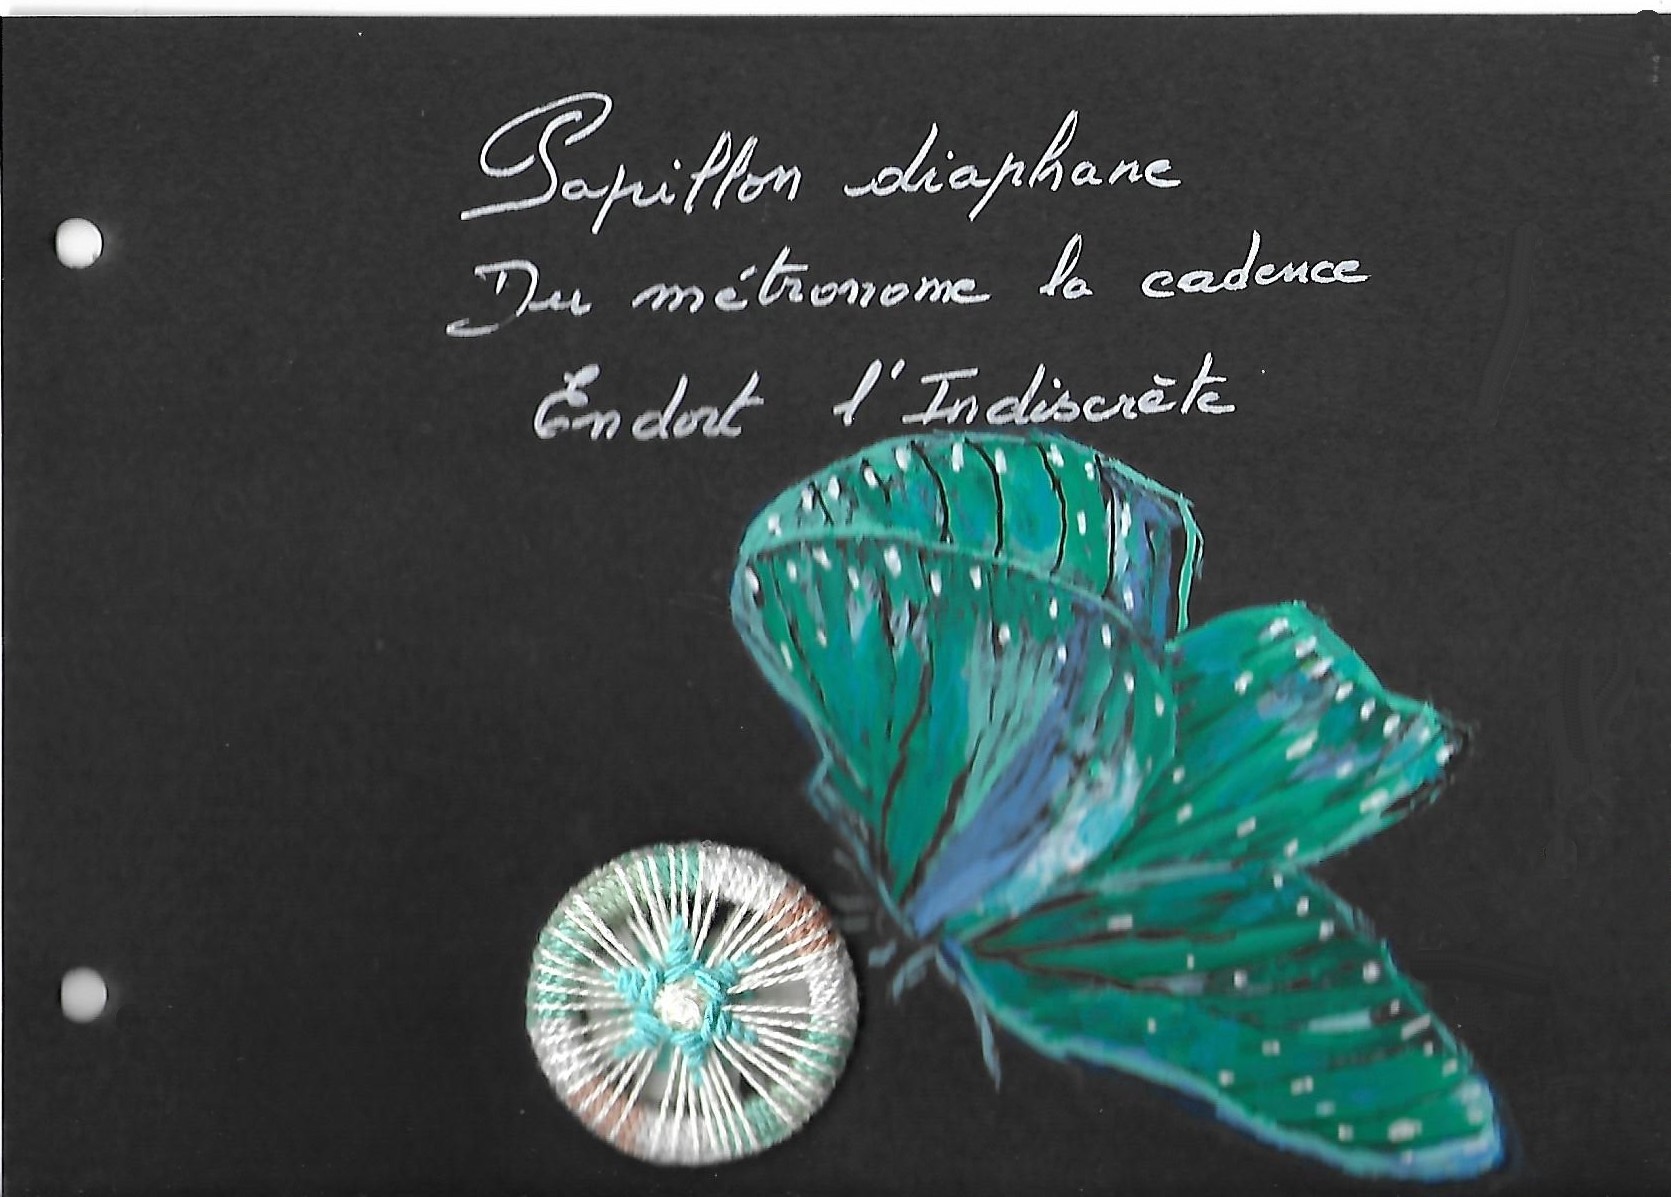 Papillon diaphane
Du métronome la cadence
Endort l'Indiscrète